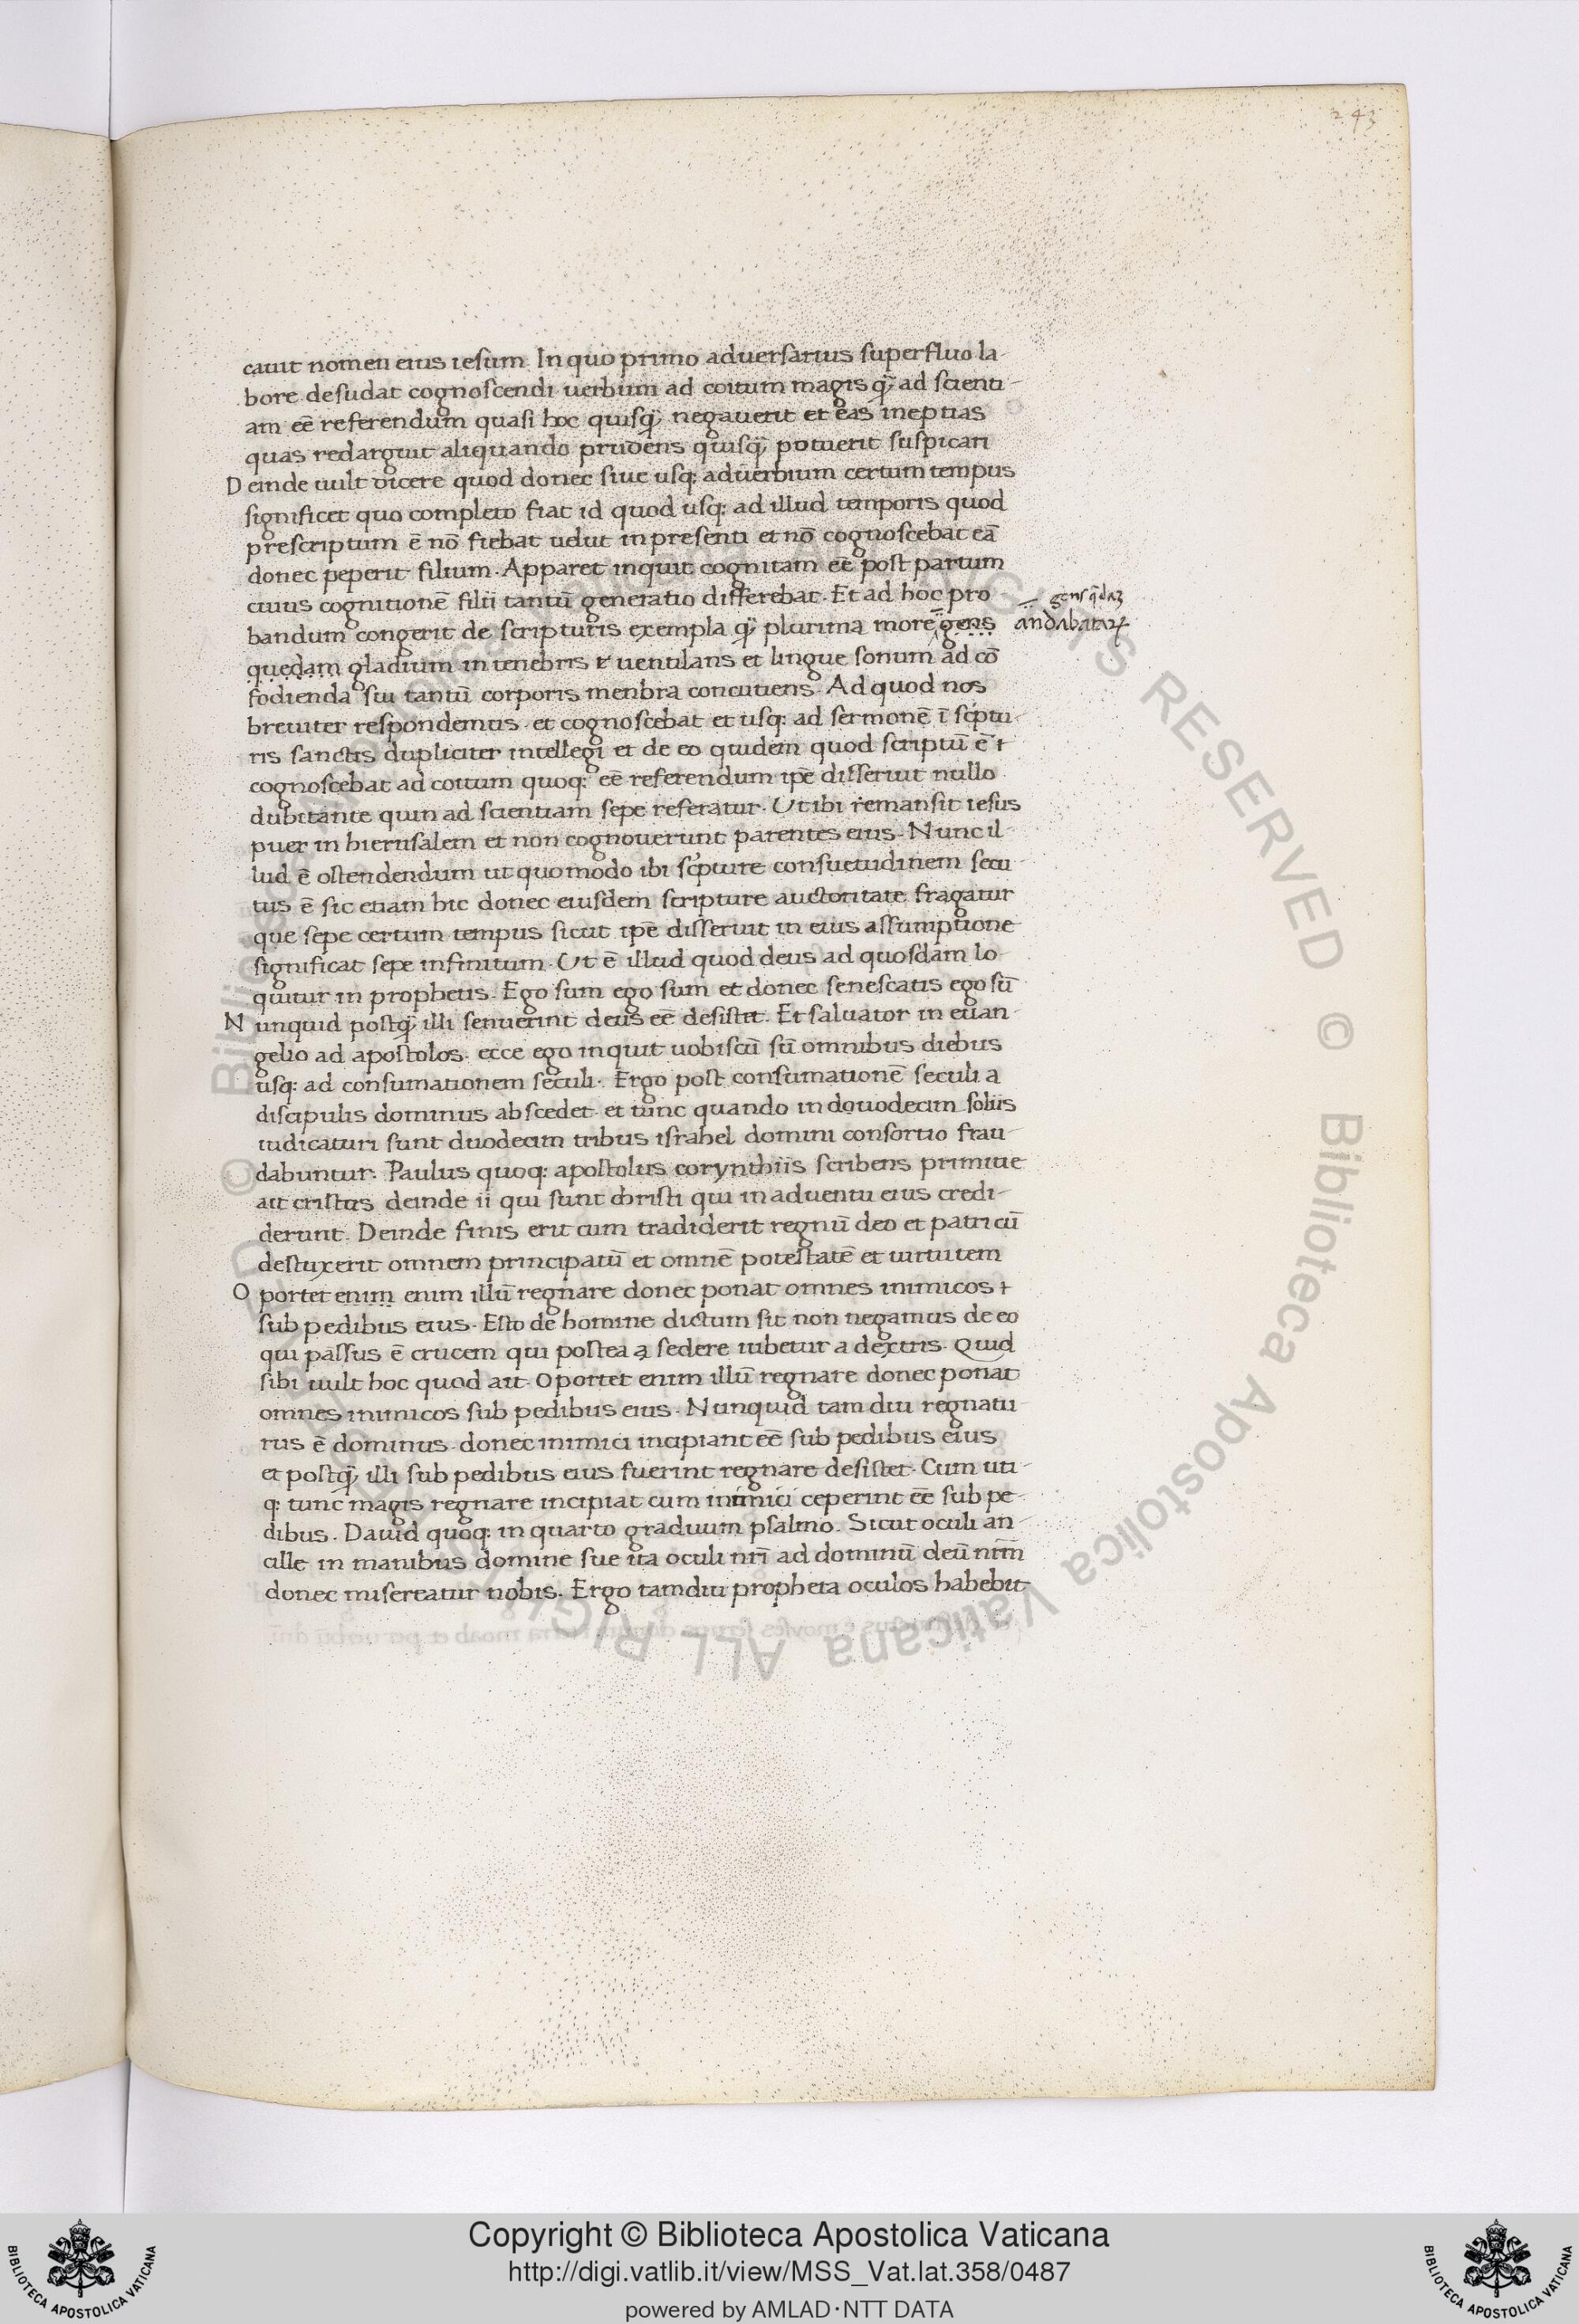 243
cauit nomen eius iesum. In quo primo aduersarius superfluo la-
bore desudat cognoscendi uerbum ad coitum magis q̃; ad scienti-
am eē referendum quasi hoc quisq̃; negauerit et eas ineptias
quas redarguit aliquando prudens quisq̃; potuerit suspicari
Deinde uult dicere quod donec siue usq: aduerbium certum tempus
significet quo completo fiat id quod usq: ad illud temporis quod
prescriptum ē nō fiebat uelut in presenti et nō cognoscebat eā
donec peperit filium. Apparet inquit cognitam eē post partum
cuius cognitionē filii tantū generatio differebat. Et ad hoc pro
bandum congerit de scripturis exempla q̃; plurima more gens
gens q̄dā
andabataꝝ
quedam gladium in tenebris t uentilans et lingue sonum ad cō
fodienda sui tantū corporis menbra concutiens. Ad quod nos
breuiter respondemus. et cognoscebat et usq: ad sermonē ī scptu-
ris sanctis dupliciter intellegi et de eo quidem quod scriptū ē t
cognoscebat ad coitum quoq: eē referendum ipē disseruit nullo
dubitante quin ad scientiam sepe referatur. Ut ibi remansit iesus
puer in hierusalem et non cognouerunt parentes eius. Nunc il-
lud ē ostendendum ut quomodo ibi scpture consuetudinem secu-
tus ē sic etiam hic donec eiusdem scripture auctoritate fragatur
que sepe certum tempus sicut ipē disseruit in eius assumptione
significat sepe infinitum. Ut ē illud quod deus ad quosdam lo-
quitur in prophetis. Ego sum ego sum et donec senescatis ego sū
Nunquid postq̃; illi senuerint deus eē desistet. Et saluator in euan-
gelio ad apostolos. ecce ego inquit uobiscū sū omnibus diebus
usq: ad consumationem seculi. Ergo post consumationē seculi a
discipulis dominus abscedet. et tunc quando in douodecim soliis
iudicaturi sunt duodecim tribus israhel domini consortio frau-
dabuntur. Paulus quoq: apostolus corynthiis scribens primitie
ait cristus deinde ii qui sunt christi qui in aduentu eius credi-
derunt. Deinde finis erit cum tradiderit regnū deo et patri cū
destuxerit omnem principatū et omnē potestatē et uirtutem
Oportet enim enim illū regnare donec ponat omnes inimicos t
sub pedibus eius. Esto de homine dictum sit non negamus de eo
qui passus ē crucem qui postea a sedere iubetur a dextris. Quid
sibi uult hoc quod ait. Oportet enim illū regnare donec ponat
omnes inimicos sub pedibus eius. Nunquid tam diu regnatu-
rus ē dominus. donec inimici incipiant eē sub pedibus eius
et postq̃; illi sub pedibus eius fuerint regnare desistet. Cum uti-
q: tunc magis regnare incipiat cum inimici ceperint eē sub pe-
dibus. Dauid quoq: in quarto graduum psalmo. Sicut oculi an-
cille in manibus domine sue ita oculi nrī ad dominū deū nrm̄
donec misereatur nobis. Ergo tamdiu propheta oculos habebit
© Biblioteca Apostolica Vaticana ALL RIGHTS RESERVED © Biblioteca Apostolica Vaticana ALL RIGHTS RESERVED
BIBLIOTECA APOSTOLICA VATICANA
Copyright © Biblioteca Apostolica Vaticana
http://digi.vatlib.it/view/MSS_Vat.lat.358/0487
powered by AMLAD·NTT DATA
BIBLIOTECA APOSTOLICA VATICANA